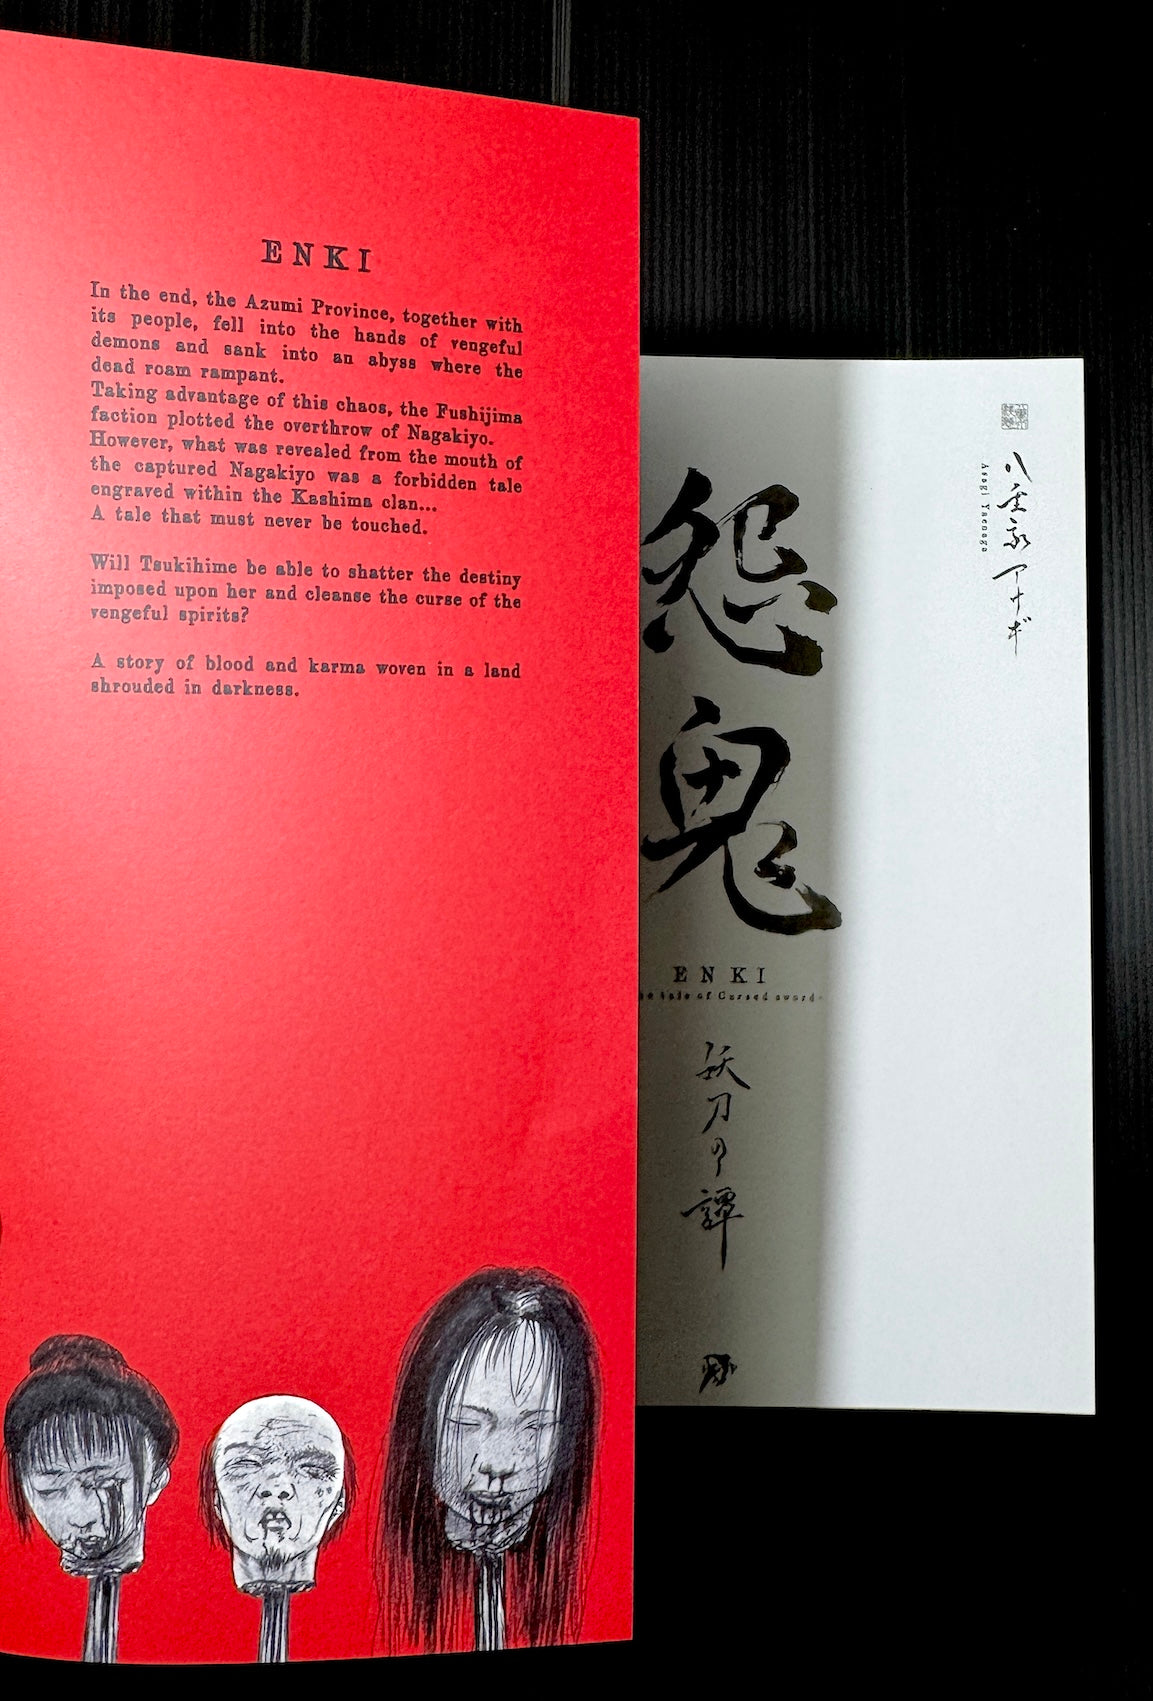 ENKI
In the end, the Azumi Province, together with
its people, fell into the hands of vengeful
demons and sank into an abyss where the
dead roam rampant.
Taking advantage of this chaos, the Fushijima
faction plotted the overthrow of Nagakiyo.
However, what was revealed from the mouth of
the captured Nagakiyo was a forbidden tale
engraved within the Kashima clan...
A tale that must never be touched.
Will Tsukihime be able to shatter the destiny
imposed upon her and cleanse the curse of the
vengeful spirits?
A story of blood and karma woven in a land
shrouded in darkness.
八重永アサギ
Asagi Yaenaga
怨鬼
ENKI
tale of Cursed sword
妖刀の譚